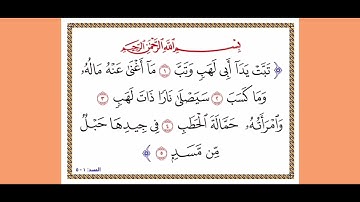 بِسْمِ ٱللَّهِ ٱلرَّحْمَٰنِ ٱلرَّحِيمِ
﴿ تَبَّتْ يَدَآ أَبِى لَهَبٍ وَتَبَّ ١ مَآ أَغْنَىٰ عَنْهُ مَالُهُۥ
وَمَا كَسَبَ ٢ سَيَصْلَىٰ نَارًا ذَاتَ لَهَبٍ ٣
وَٱمْرَأَتُهُۥ حَمَّالَةَ ٱلْحَطَبِ ٤ فِى جِيدِهَا حَبْلٌ
مِّن مَّسَدٍۭ ٥ ﴾
المسد: ١ - ٥